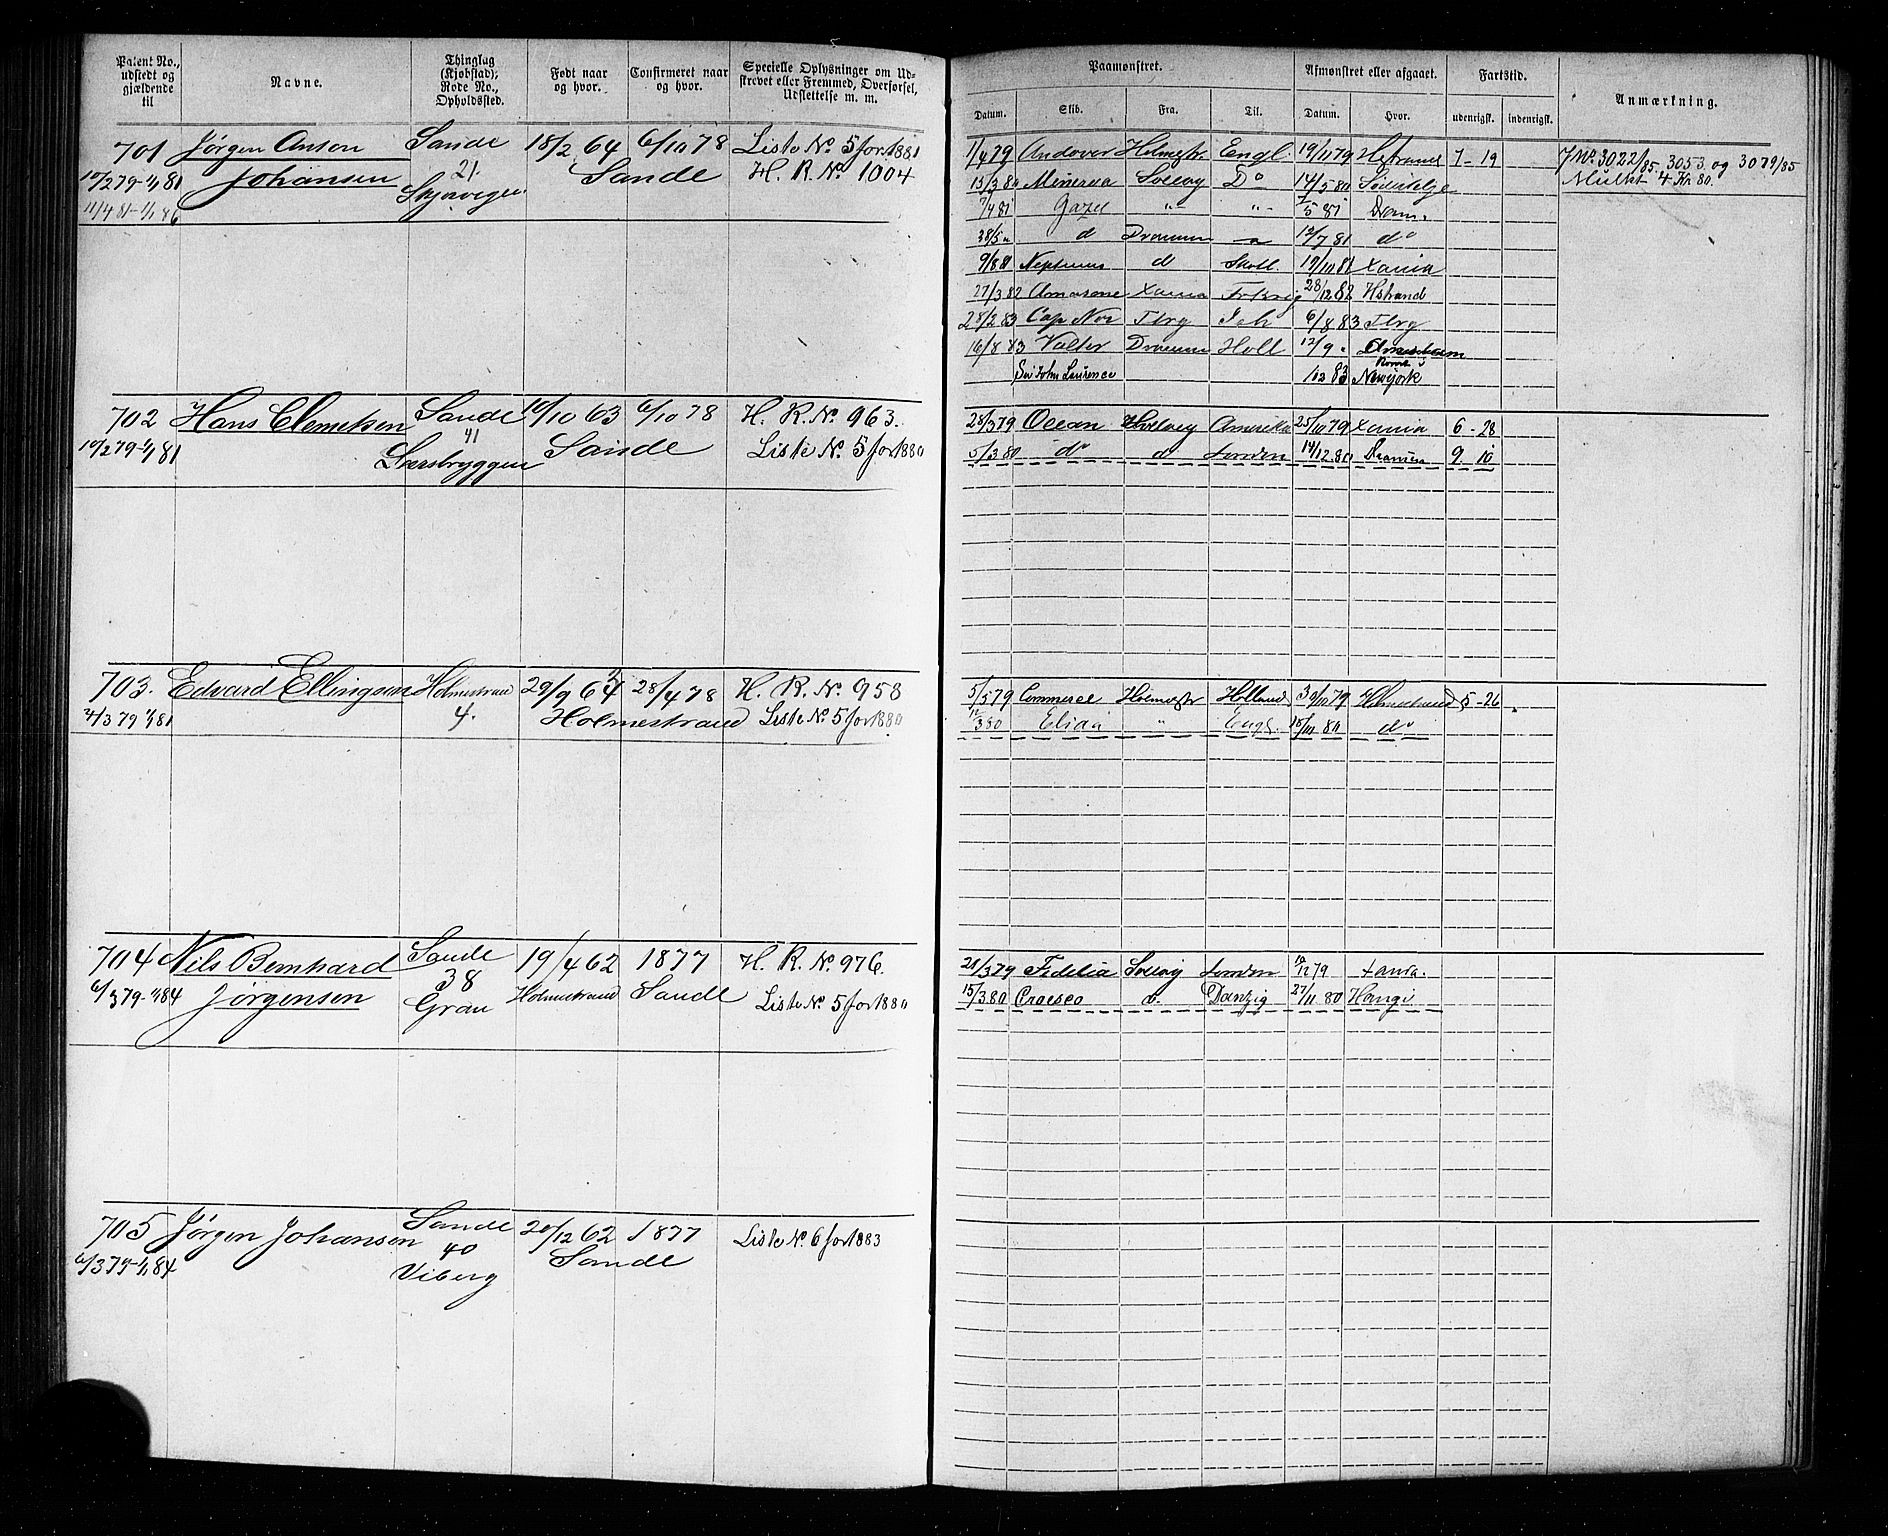 Patent No., udstedt og gjældende til
Navne.
Thinglag (Kjøbstad), Rode No., Opholdssted.
Født naar og hvor.
Confirmeret naar og hvor.
Specielle Oplysninger om Udskrevet eller Fremmed, Overførsel, Udslettelse m. m.
Paamønstret.
Afmønstret eller afgaaet.
Fartstid.
Anmærkning.
Datum.
Skib.
Fra.
Til.
Datum.
Hvor.
udenrigsk.
indenrigsk.
701 Jørgen Anton Sande 18/2 64 6/10 78 Liste No 5 for 1881
10/2 79-1/1 81 Johansen 21. Sande H. R. No 1004
11/4 81-1/1 86
1/4 79 Andover Holmestr. Engl. 19/11 79 7-19
JNo 3022/85. 3053. og 3079/85
15/3 80 Minerva Do 14/5 80
Mulkt 4 Kr 80.
7/4 81 Gazel " " 81 Dram.
28/5 " d Drammen 12/7 81 do
9/8 81 Neptunus d Skotl. 19/10 81 Xania
27/3 82 Amasone Xania 28/12 82 Hstrand
28/2 83 Cap Nor Tbrg Ish 6/8 83 Tbrg
16/8 83 Valter Drammen Holl 12/9 "
Sir John Laurence 83 Newyork
702 Hans Clemetsen Sande 10/10 63 6/10 78 H. R. No 963.
10/2 79-1/1 81 41 Sande Liste No 5 for 1880
28/3 79 Ocean Amerika 25/10 79 Xania 6-28
5/3 80 do d London 14/12 80 Dramen 9 10
703. Edvard Ellingsen Holmestrand 29/9 64 28/4 78 H. R. No 958
4/3 79 1/1 81 4. Holmestrand Liste No 5 for 1880
5/5 79 Commerce Holmestr Holland 30/10 79 Holmestrand 5-26
12/3 80 Elida " Engl. 15/11 80 do
704 Nils Bernhard Sande 19/4 62 1877 H. R. No 976.
6/3 79-1/1 84 Jørgensen 38 Holmestrand Sande Liste No 5 for 1880
Grav
28/3 79 Fidelia London 79 Xania.
15/3 80 Craesco d. Danzig 27/11 80
705 Jørgen Johansen Sande 20/12 62 1877 Liste No 6 for 1883
6/3 79-1/1 84 40 Sande
Viberg